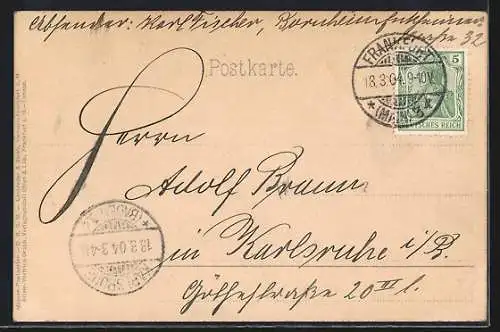 Absender: Karl Fischer, Bornheim
straße 32
Postkarte.
FRANKFURT
18.3.04.9-10V.
* (MAIN) 1
5
DEUTSCHES REICH
Herrn
Adolf Braun
in Karlsruhe i/B.
Göthestraße 20 III l.
(BADEN)
18.3.04.3-4
KARLSRUHE